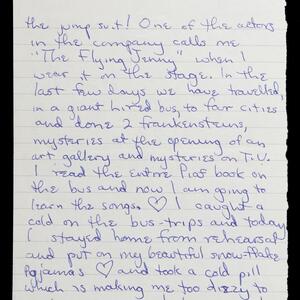 the jump suit! One of the actors
in the company calls me
"The Flying Jenny" when I
wear it on the stage. In the
last few days we have travelled,
in a giant hired bus, to far cities
and done 2 frankensteins,
mysteries at the opening of an
art gallery and mysteries on T.V.
I read the entire Piaf book on
the bus and now I am going to
learn the songs. ♡ I caught a
cold on the bus-trips and today
I stayed home from rehearsal
and put on my beautiful snow-flake
pajamas ♡ and took a cold pill
which is making me too dizzy to